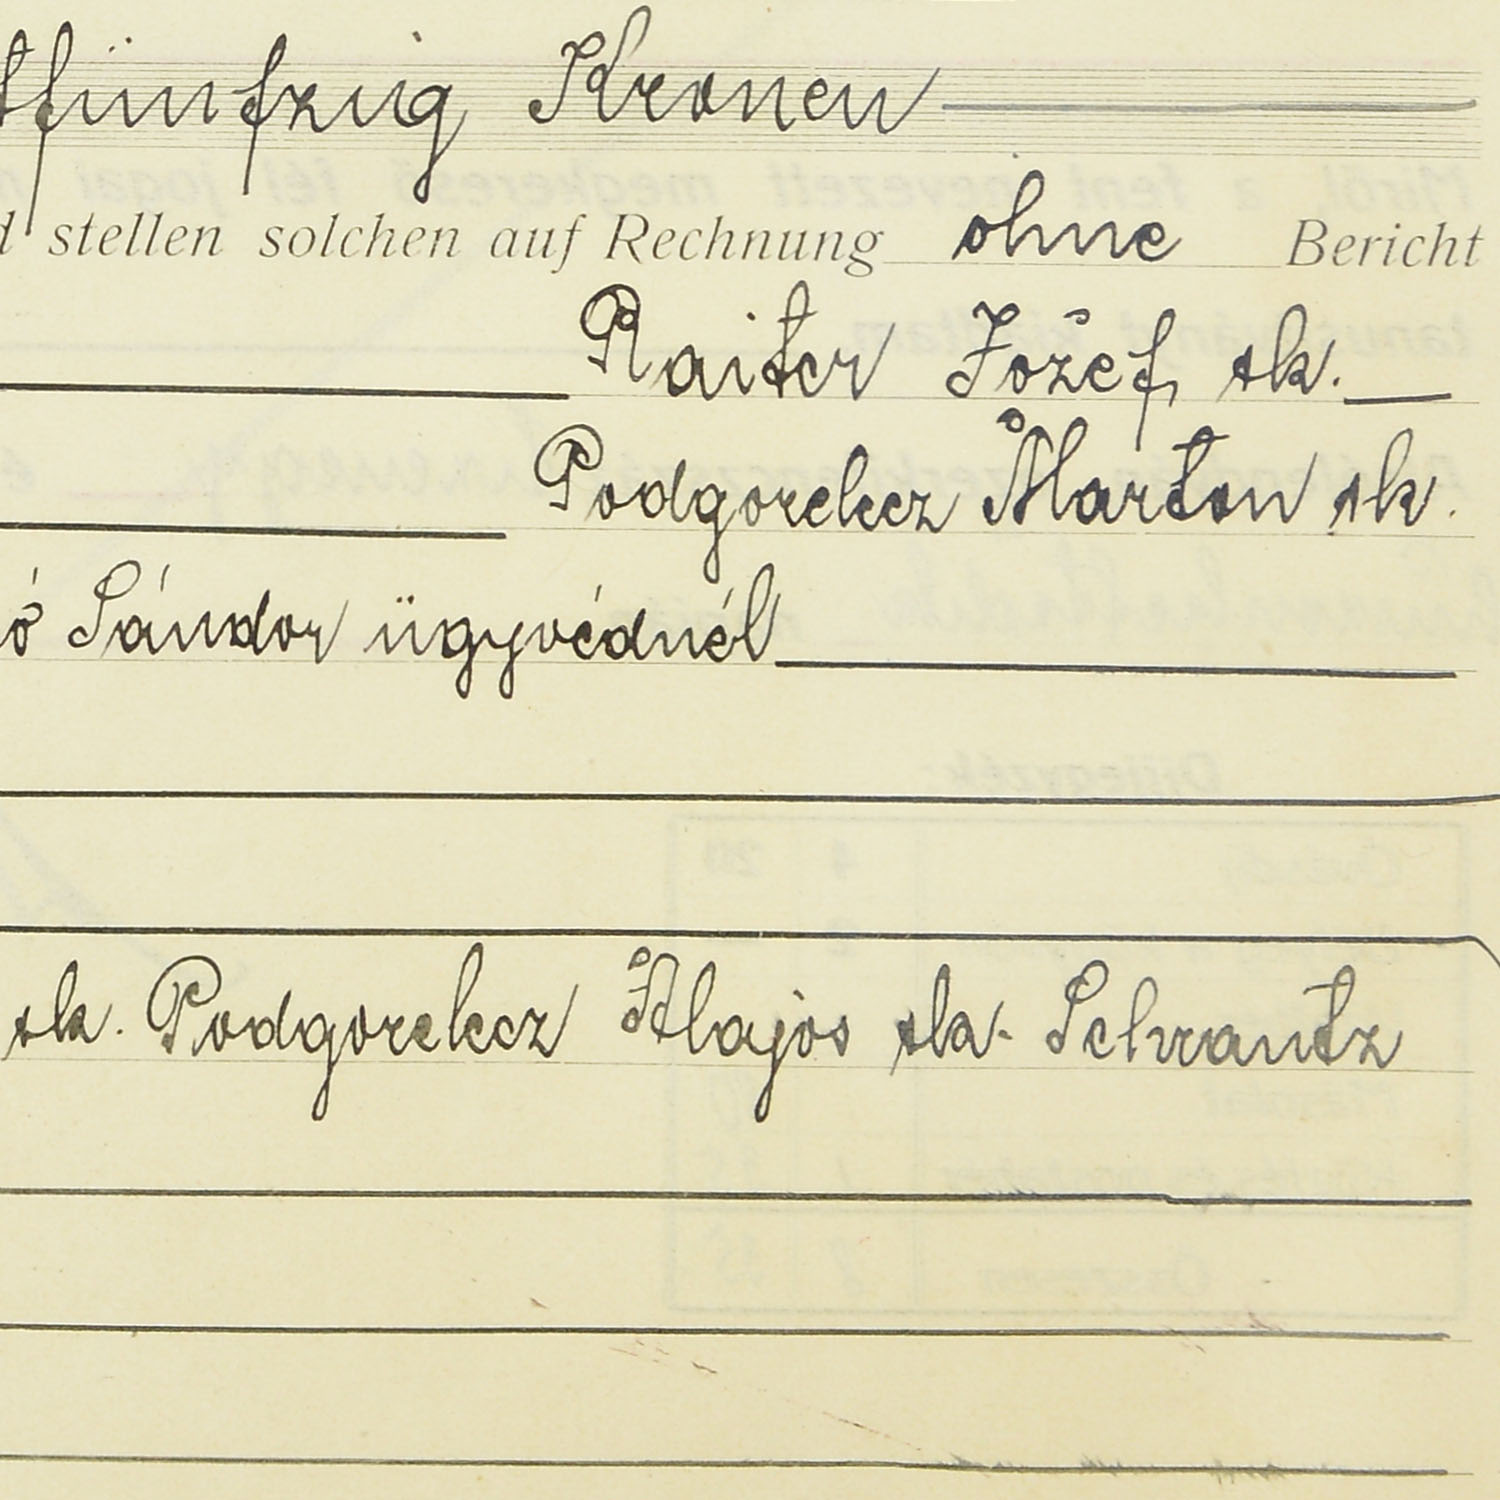 tfünfzig Kronen
d stellen solchen auf Rechnung ohne Bericht
Raiter József sk.
Podgorelecz Márton sk.
ó Sándor ügyvédnél
sk. Podgorelecz Alajos sk. Schrantz